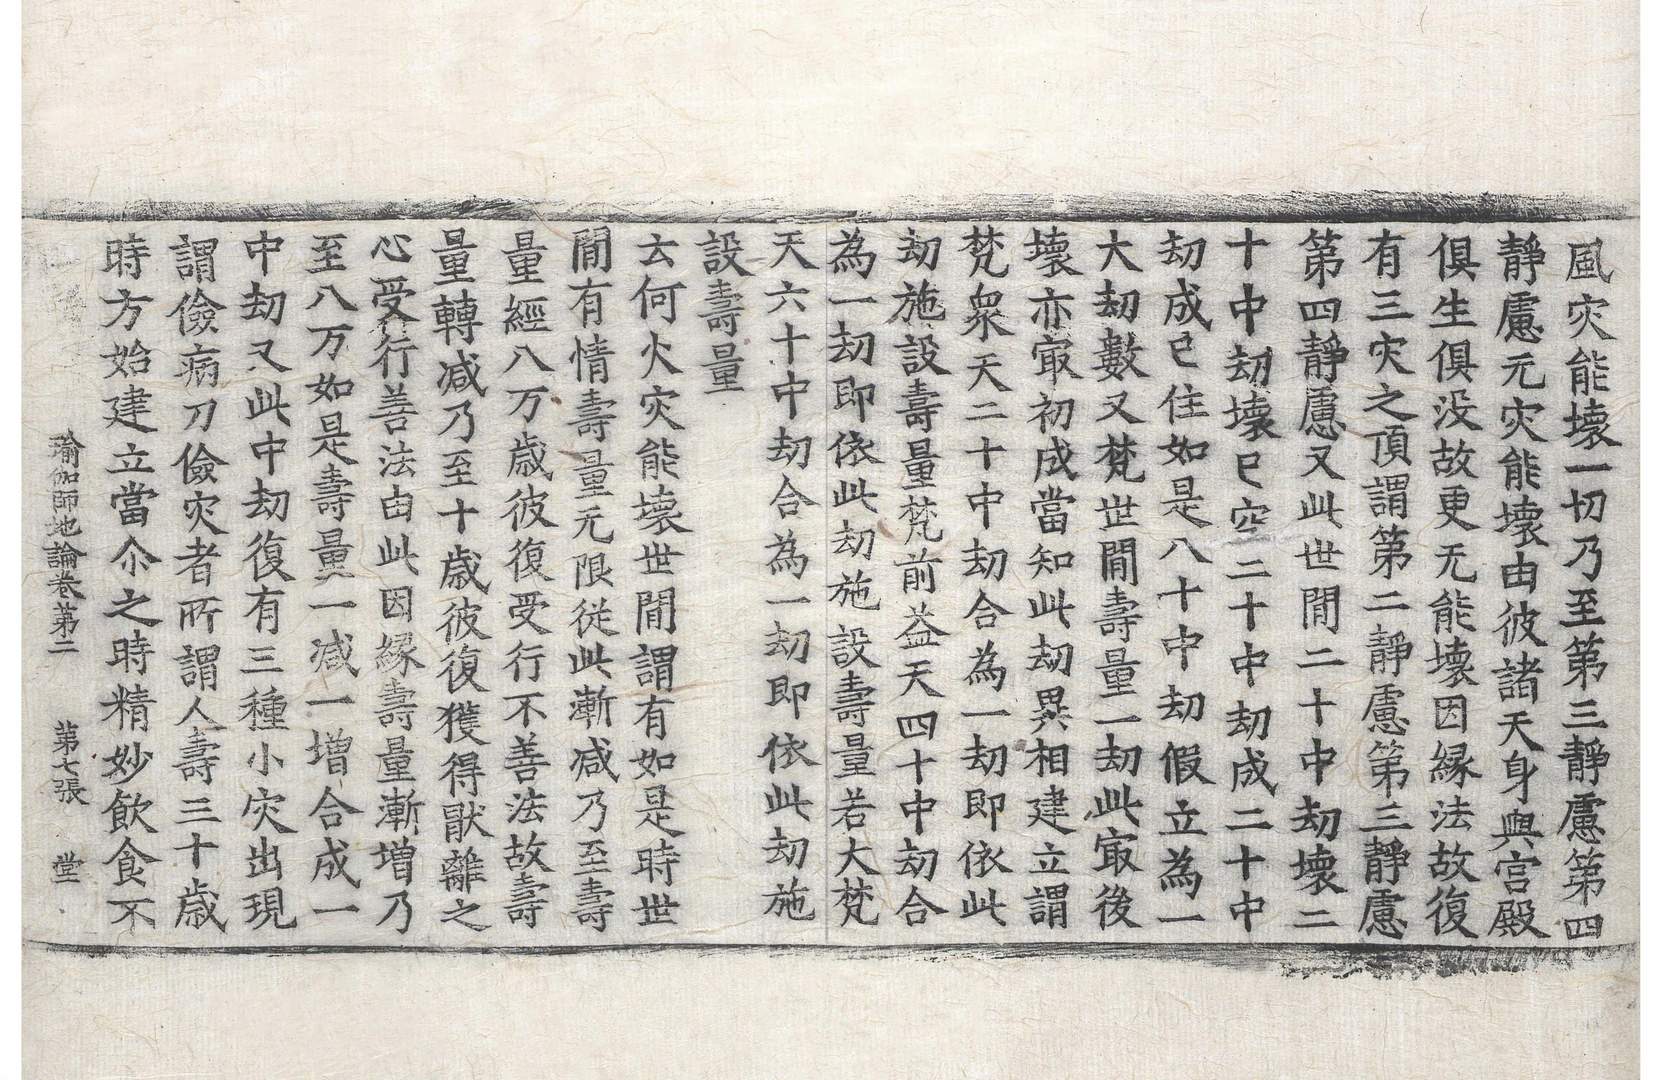 風灾能壞一切乃至第三靜慮第四
靜慮无灾能壞由彼諸天身與宫殿
俱生俱没故更无能壞因縁法故復
有三灾之頂謂第二靜慮第三靜慮
第四靜慮又此世間二十中劫壞二
十中劫壞已空二十中劫成二十中
劫成已住如是八十中劫假立為一
大劫數又梵世間壽量一劫此㝡後
壞亦㝡初成當知此劫異相建立謂
梵衆天二十中劫合為一劫即依此
劫施設壽量梵前益天四十中劫合
為一劫即依此劫施設壽量若大梵
天六十中劫合為一劫即依此劫施
設壽量
云何火灾能壞世間謂有如是時世
間有情壽量无限從此漸减乃至壽
量經八万歲彼復受行不善法故壽
量轉减乃至十歲彼復獲得猒離之
心受行善法由此因縁壽量漸增乃
至八万如是壽量一减一增合成一
中劫又此中劫復有三種小灾出現
謂儉病刀儉灾者所謂人壽三十歲
時方始建立當尒之時精妙飲食不
瑜伽師地論卷第二 第七張 堂